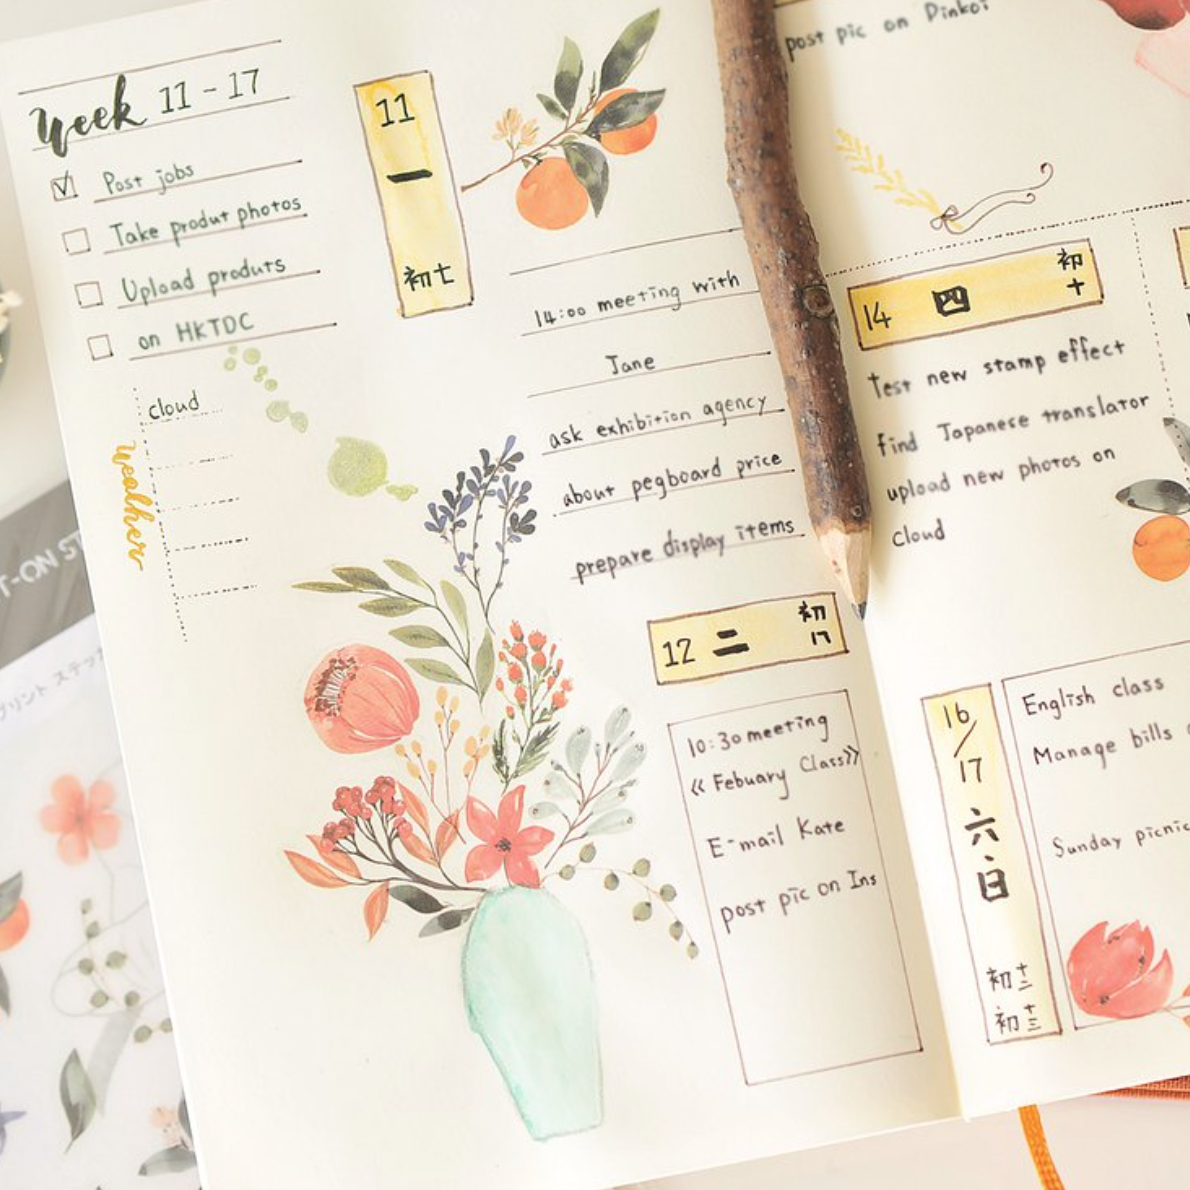 Week 11-17
Post jobs
Take produt photos
Upload produts
on HKTDC
cloud
weather
11
一
初七
14:00 meeting with
Jane
ask exhibition agency
about pegboard price
prepare display items
12 二 初八
10:30 meeting
《Febuary Class》
E-mail Kate
post pic on Ins
post pic on Pinkoi
14 四 初十
Test new stamp effect
find Japanese translator
upload new photos on
cloud
16/17
六
日
初十二
初十三
English class
Manage bills
Sunday picnic
T-ON ST
プリント ステッ